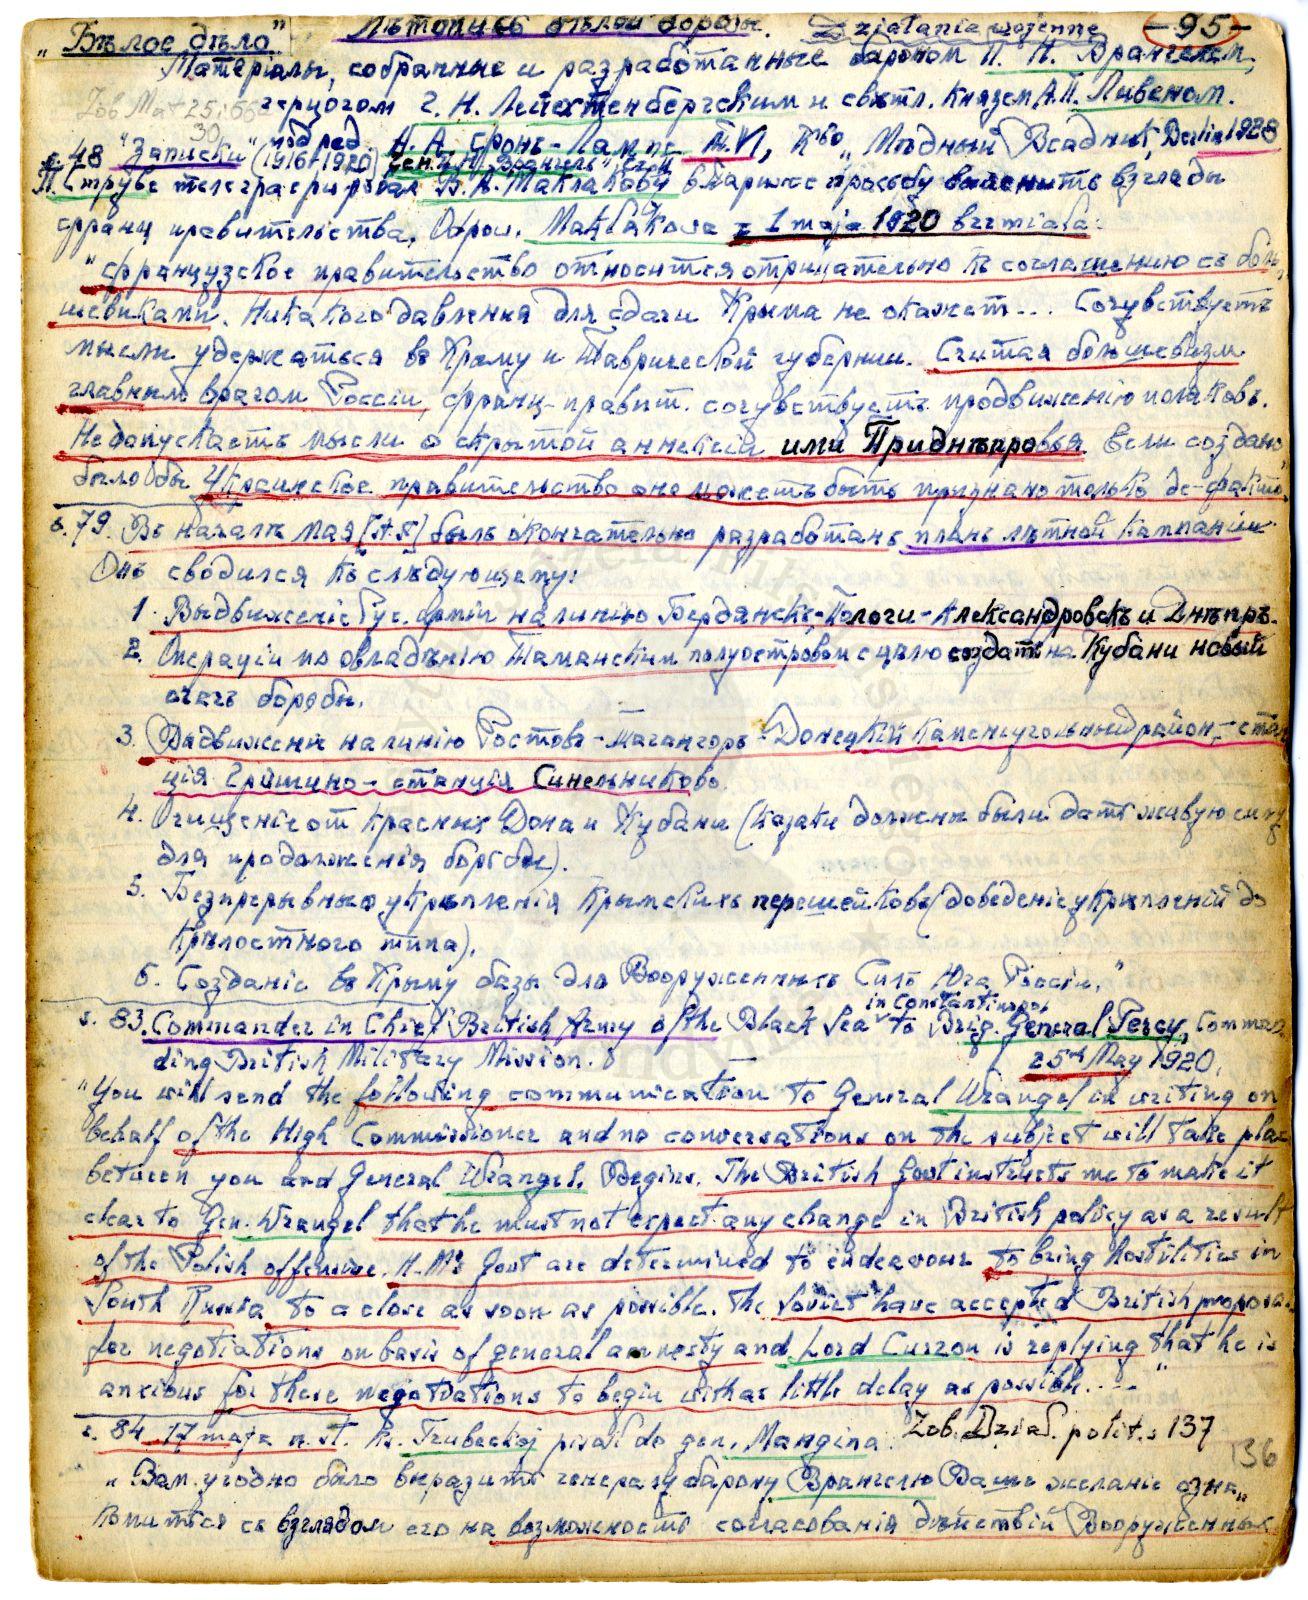 „Бѣлое дѣло" Лѣтопись бѣлой борьбы. Działania wojenne -95-
Матеріалы, собранные и разработанные барономъ П. Н. Врангелем,
Zob Mat 25; 56a герцогом Г. Н. Лейхтенбергским и свѣтл. Князем А. П. Ливеном.
30
подред. А. А. фонъ-Лампе. T. VI, К-во „Мѣдный Всадник", Berlin 1928
s. 48 "Записки" (1916-1920) Ген. П. Н. Врангель
П. Струве телеграфировал В. А. Маклакову в Париж просьбу выяснить взгляды
франц правительства. Маклакова z 1 maja 1920 brzmiała:
"французское правительство относится отрицательно къ соглашению съ боль-
шевиками. Никакого давления для сдачи Крыма не окажет... Сочувствуетъ
мысли удержаться въ Крыму и Таврической губернии. Считая большевизм
главным врагом России, франц-правит. сочувствуетъ продвижению поляковъ.
Не допускаетъ мысли о скрытой аннексии ими Приднѣпровья. Если создано
было бы Украинское правительство оно можетъ быть признано только де-факто.
s. 79. Въ началѣ мая [A.Я] былъ окончательно разработанъ планъ лѣтной кампаніи
Онъ сводился къ слѣдующему:
1. Выдвиженіе Рус. арміи на линию Бердянскъ-Пологи-Александровскъ и Днѣпръ.
2. Операціи по овладѣнію Таманским полуостровом с цѣлю создать на Кубани новый
очагъ борьбы.
3. Выдвиженіе на линію Ростовъ-Таганрогъ-Донецкій каменноугольный район,-стан-
ція Гришино-станція Синельниково.
4. Очищеніе от красных Дона и Кубани (Казаки должны были дать живую силу
для продолженія борьбы).
5. Безпрерывныя укрѣпленія Крымскихъ перешейковъ (доведеніе укрѣпленій до
крѣпостного типа).
6. Созданіе въ Крыму базы для Вооруженныхъ Силъ Юга Россіи."
in Constantinopol
s. 83. Commander in Chief British Army of the Black Sea to Brig. General Percy, Comman-
ding British Military Mission. 25th May 1920.
"You will send the following communication to General Wrangel in writing on
behalf of the High Commissioner and no conversations on the subject will take place
between you and General Wrangel. Begins. The British Govt instructs me to make it
clear to Gen. Wrangel that he must not expect any change in British policy as a result
of the Polish offensive. H.M's Govt are determined to endeavour to bring hostilities in
South Russia to a close as soon as possible. The Soviet have accepted British proposal
for negotiations on basis of general amnesty and Lord Curzon is replying that he is
anxious for these negotiations to begin with as little delay as possible...."
s. 84. 17 maja n. st. Ks. Trubeckoj pisał do gen. Mangina. Zob. Dział. polit. s 137
136
„Вам угодно было выразить генералу барону Врангелю Ваше желаніе озна-
комиться съ взглядом его на возможность согласованія дѣйствій Вооруженных